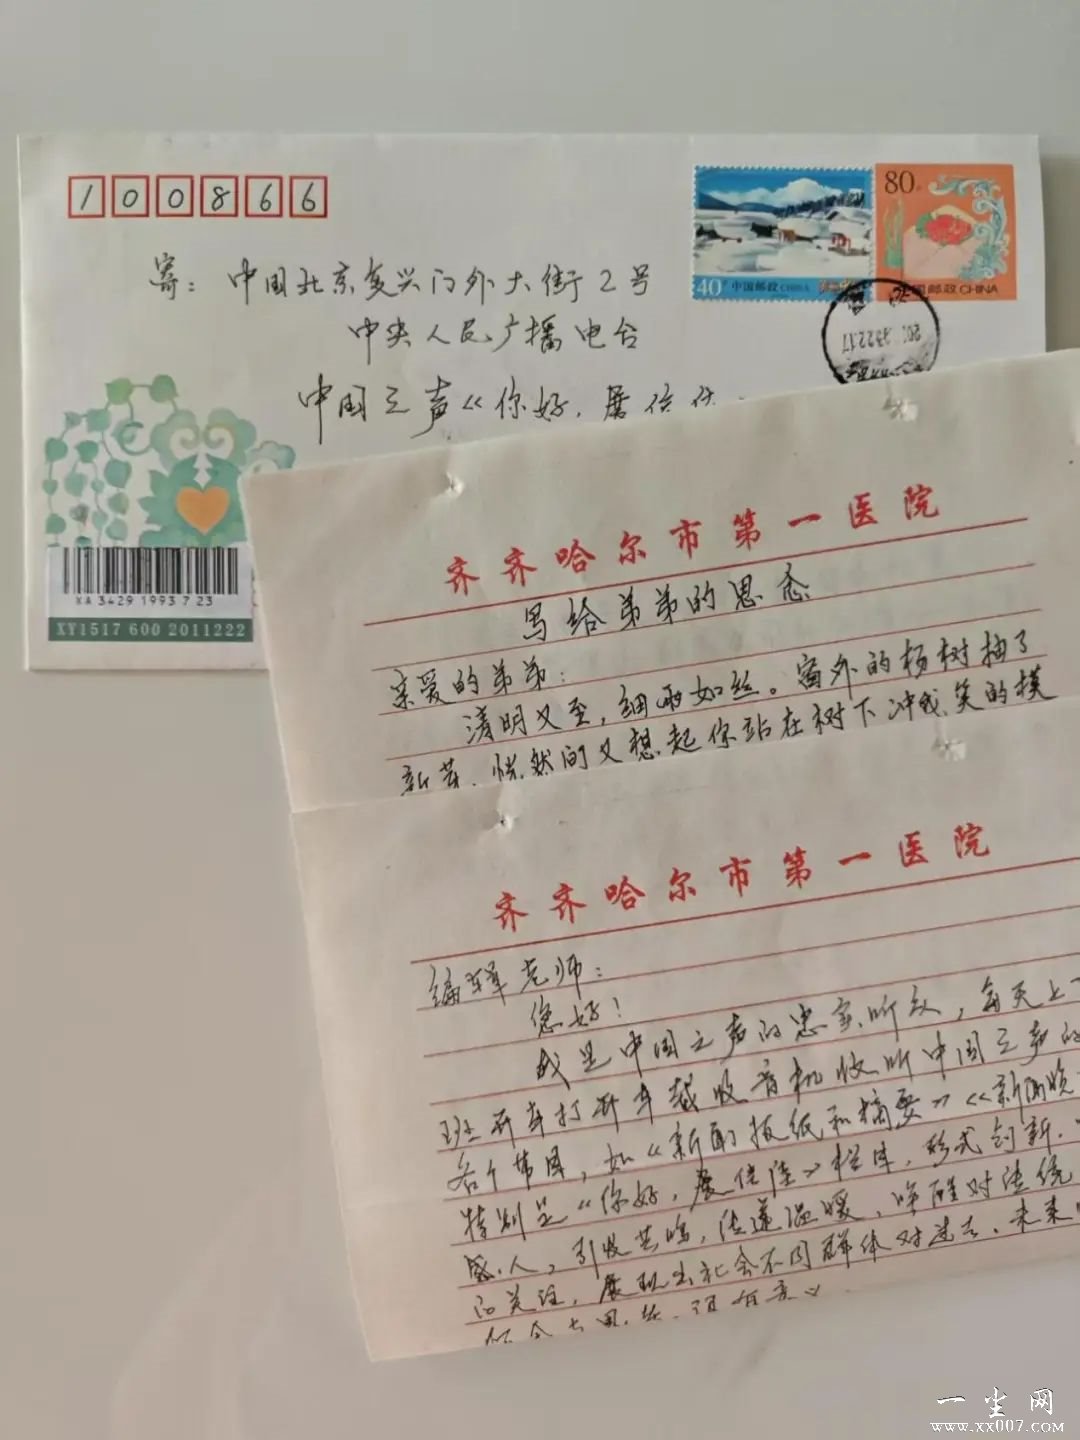 100866
寄：中国北京复兴门外大街2号
中央人民广播电台
中国之声《你好，展信佳
40 中国邮政 CHINA
80 中国邮政 CHINA
XA 3429 1993 7 23
XY1517 600 2011222
齐齐哈尔市第一医院
写给弟弟的思念
亲爱的弟弟：
清明又至，细雨如丝。窗外的杨树抽了
新芽，恍然间又想起你站在树下冲我笑的模
齐齐哈尔市第一医院
编辑老师：
您好！
我是中国之声的忠实听众，每天上下
班开车打开车载收音机收听中国之声的
各个节目，如《新闻报纸和摘要》《新闻晚
特别是《你好，展信佳》栏目，形式创新，
感人，引发共鸣，传递温暖，唤醒对传统
的关注，展现出社会不同群体对过去、未来
一尘网
www.xx007.com